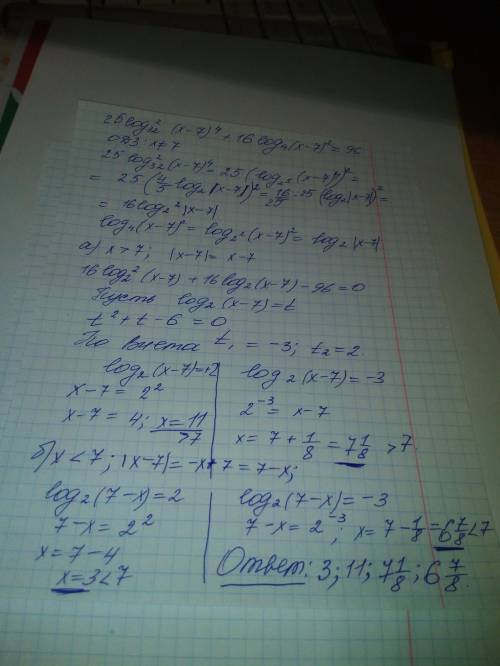 25 log²₃₂ (x-7)⁴ + 16 log₄(x-7)² = 96
ОДЗ: x ≠ 7
25 log²₃₂ (x-7)⁴ = 25 (log₂⁵ (x-7)⁴)² =
= 25 (4/5 log₂|x-7|)² = 16/25 · 25 (log₂|x-7|)² =
= 16 log₂² |x-7|
log₄(x-7)² = log₂² (x-7)² = log₂|x-7|
а) x > 7; |x-7| = x-7
16 log₂² (x-7) + 16 log₂ (x-7) - 96 = 0
Пусть log₂(x-7) = t
t² + t - 6 = 0
По Виета t₁ = -3; t₂ = 2.
log₂(x-7) = +2
x-7 = 2²
x-7 = 4; x = 11 > 7
log₂(x-7) = -3
2⁻³ = x-7
x = 7 + 1/8 = 7 1/8 > 7
б) x < 7; |x-7| = -x+7 = 7-x;
log₂(7-x) = 2
7-x = 2²
x = 7-4
x = 3 < 7
log₂(7-x) = -3
7-x = 2⁻³; x = 7 - 1/8 = 6 7/8 < 7
Ответ: 3; 11; 7 1/8; 6 7/8.